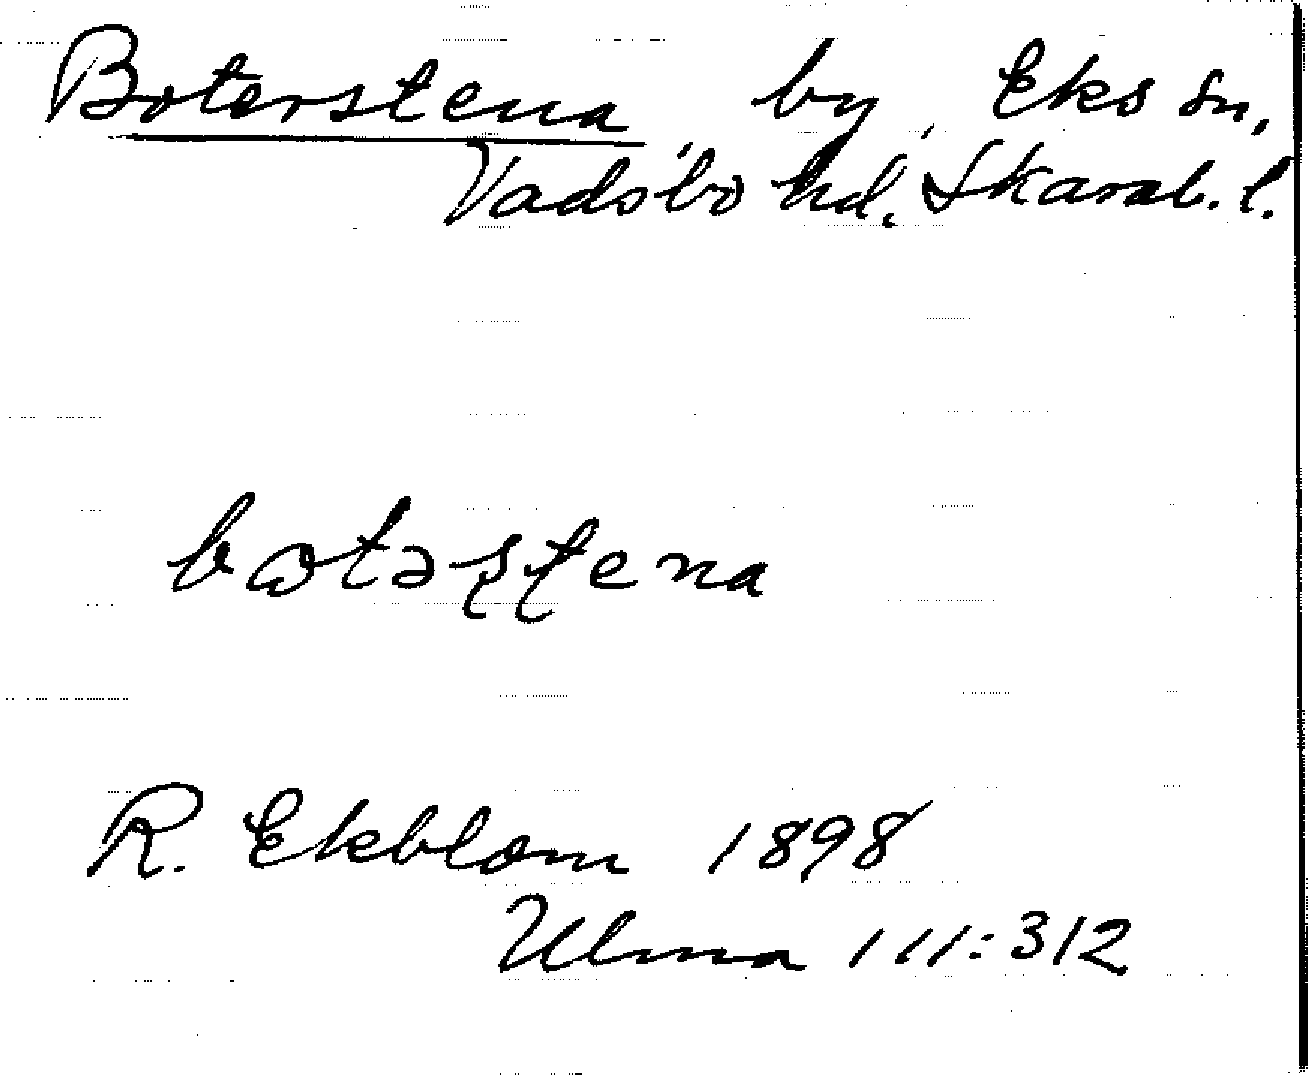 Boterstena, by, Eks sn,
Vadsbo hd. Skarab. l.
bωtəʂʈena
R. Ekblom 1898
Ulma 111:312